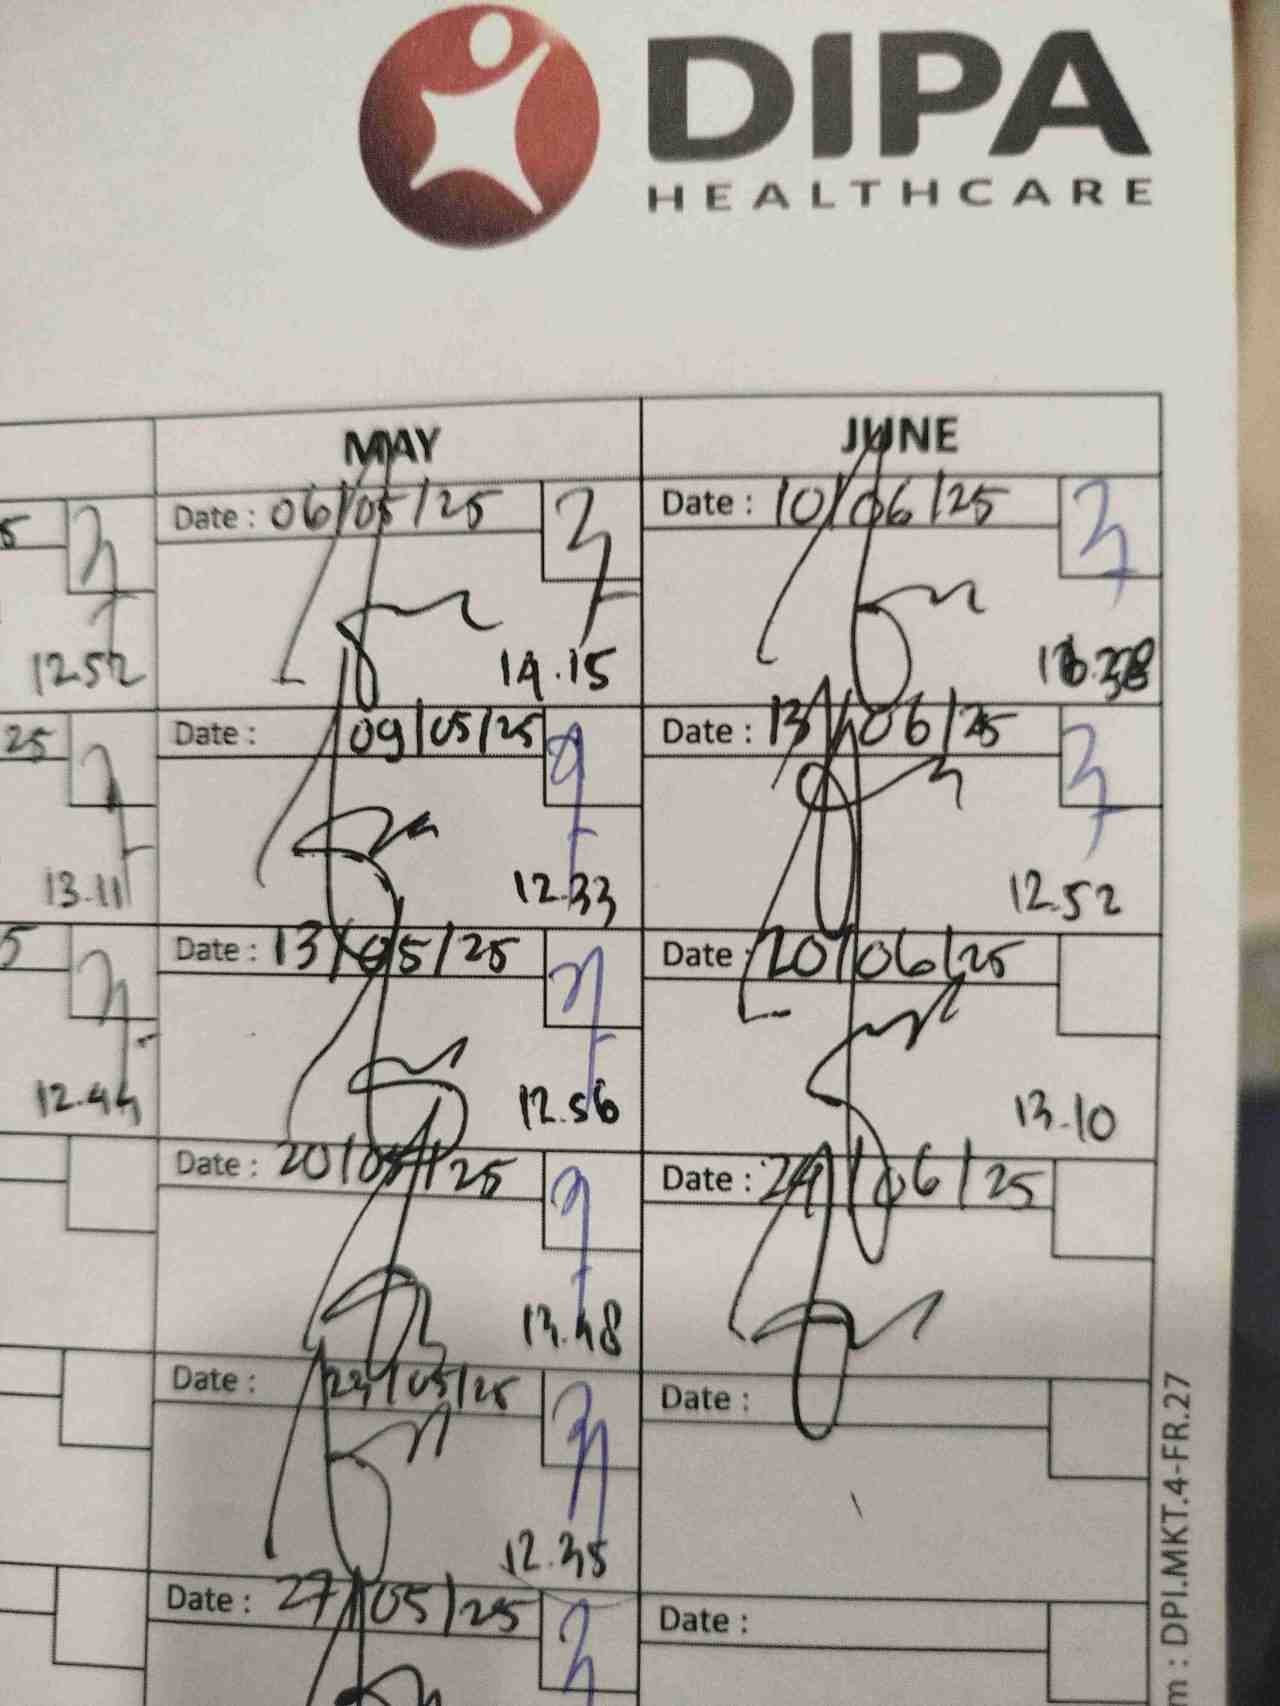 DIPA
HEALTHCARE
MAY
JUNE
5
Date : 06/05/25
Date : 10/06/25
12.52
14.15
25
Date : 09/05/25
Date : 13/06/25
13.11
12.33
12.52
5
Date : 13/05/25
Date : 20/06/25
12.44
12.56
13.10
Date : 20/05/25
Date : 24/06/25
Date : 23/05/25
Date :
12.35
Date : 27/05/25
Date :
m : DPI.MKT.4-FR.27